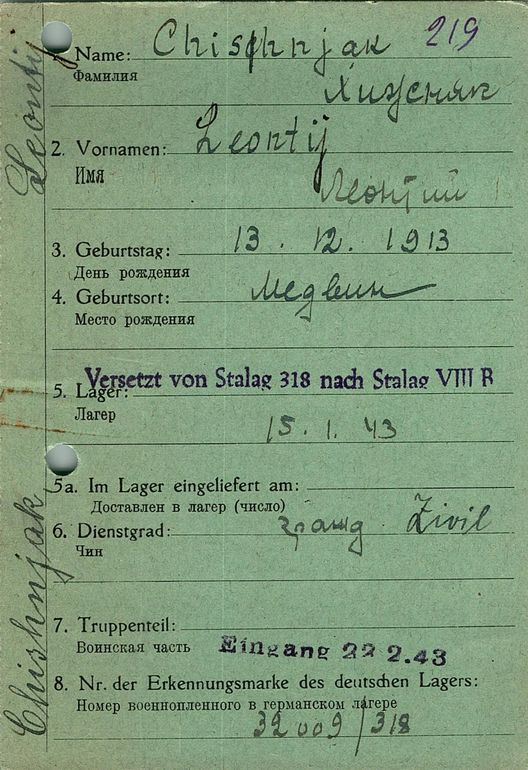 219
1. Name: Chishnjak
Фамилия
Хижсняк
2. Vornamen: Leontij
Имя
Леонтий
3. Geburtstag: 13. 12. 1913
День рождения
4. Geburtsort: Медвин
Место рождения
Versetzt von Stalag 318 nach Stalag VIII B
5. Lager:
Лагер
15. 1. 43
5a. Im Lager eingeliefert am:
Доставлен в лагер (число)
6. Dienstgrad: гражд Zivil
Чин
7. Truppenteil:
Воинская часть Eingang 22 2.43
8. Nr. der Erkennungsmarke des deutschen Lagers:
Номер военнопленного в германском лагере
32009/318
Chishnjak Leontij